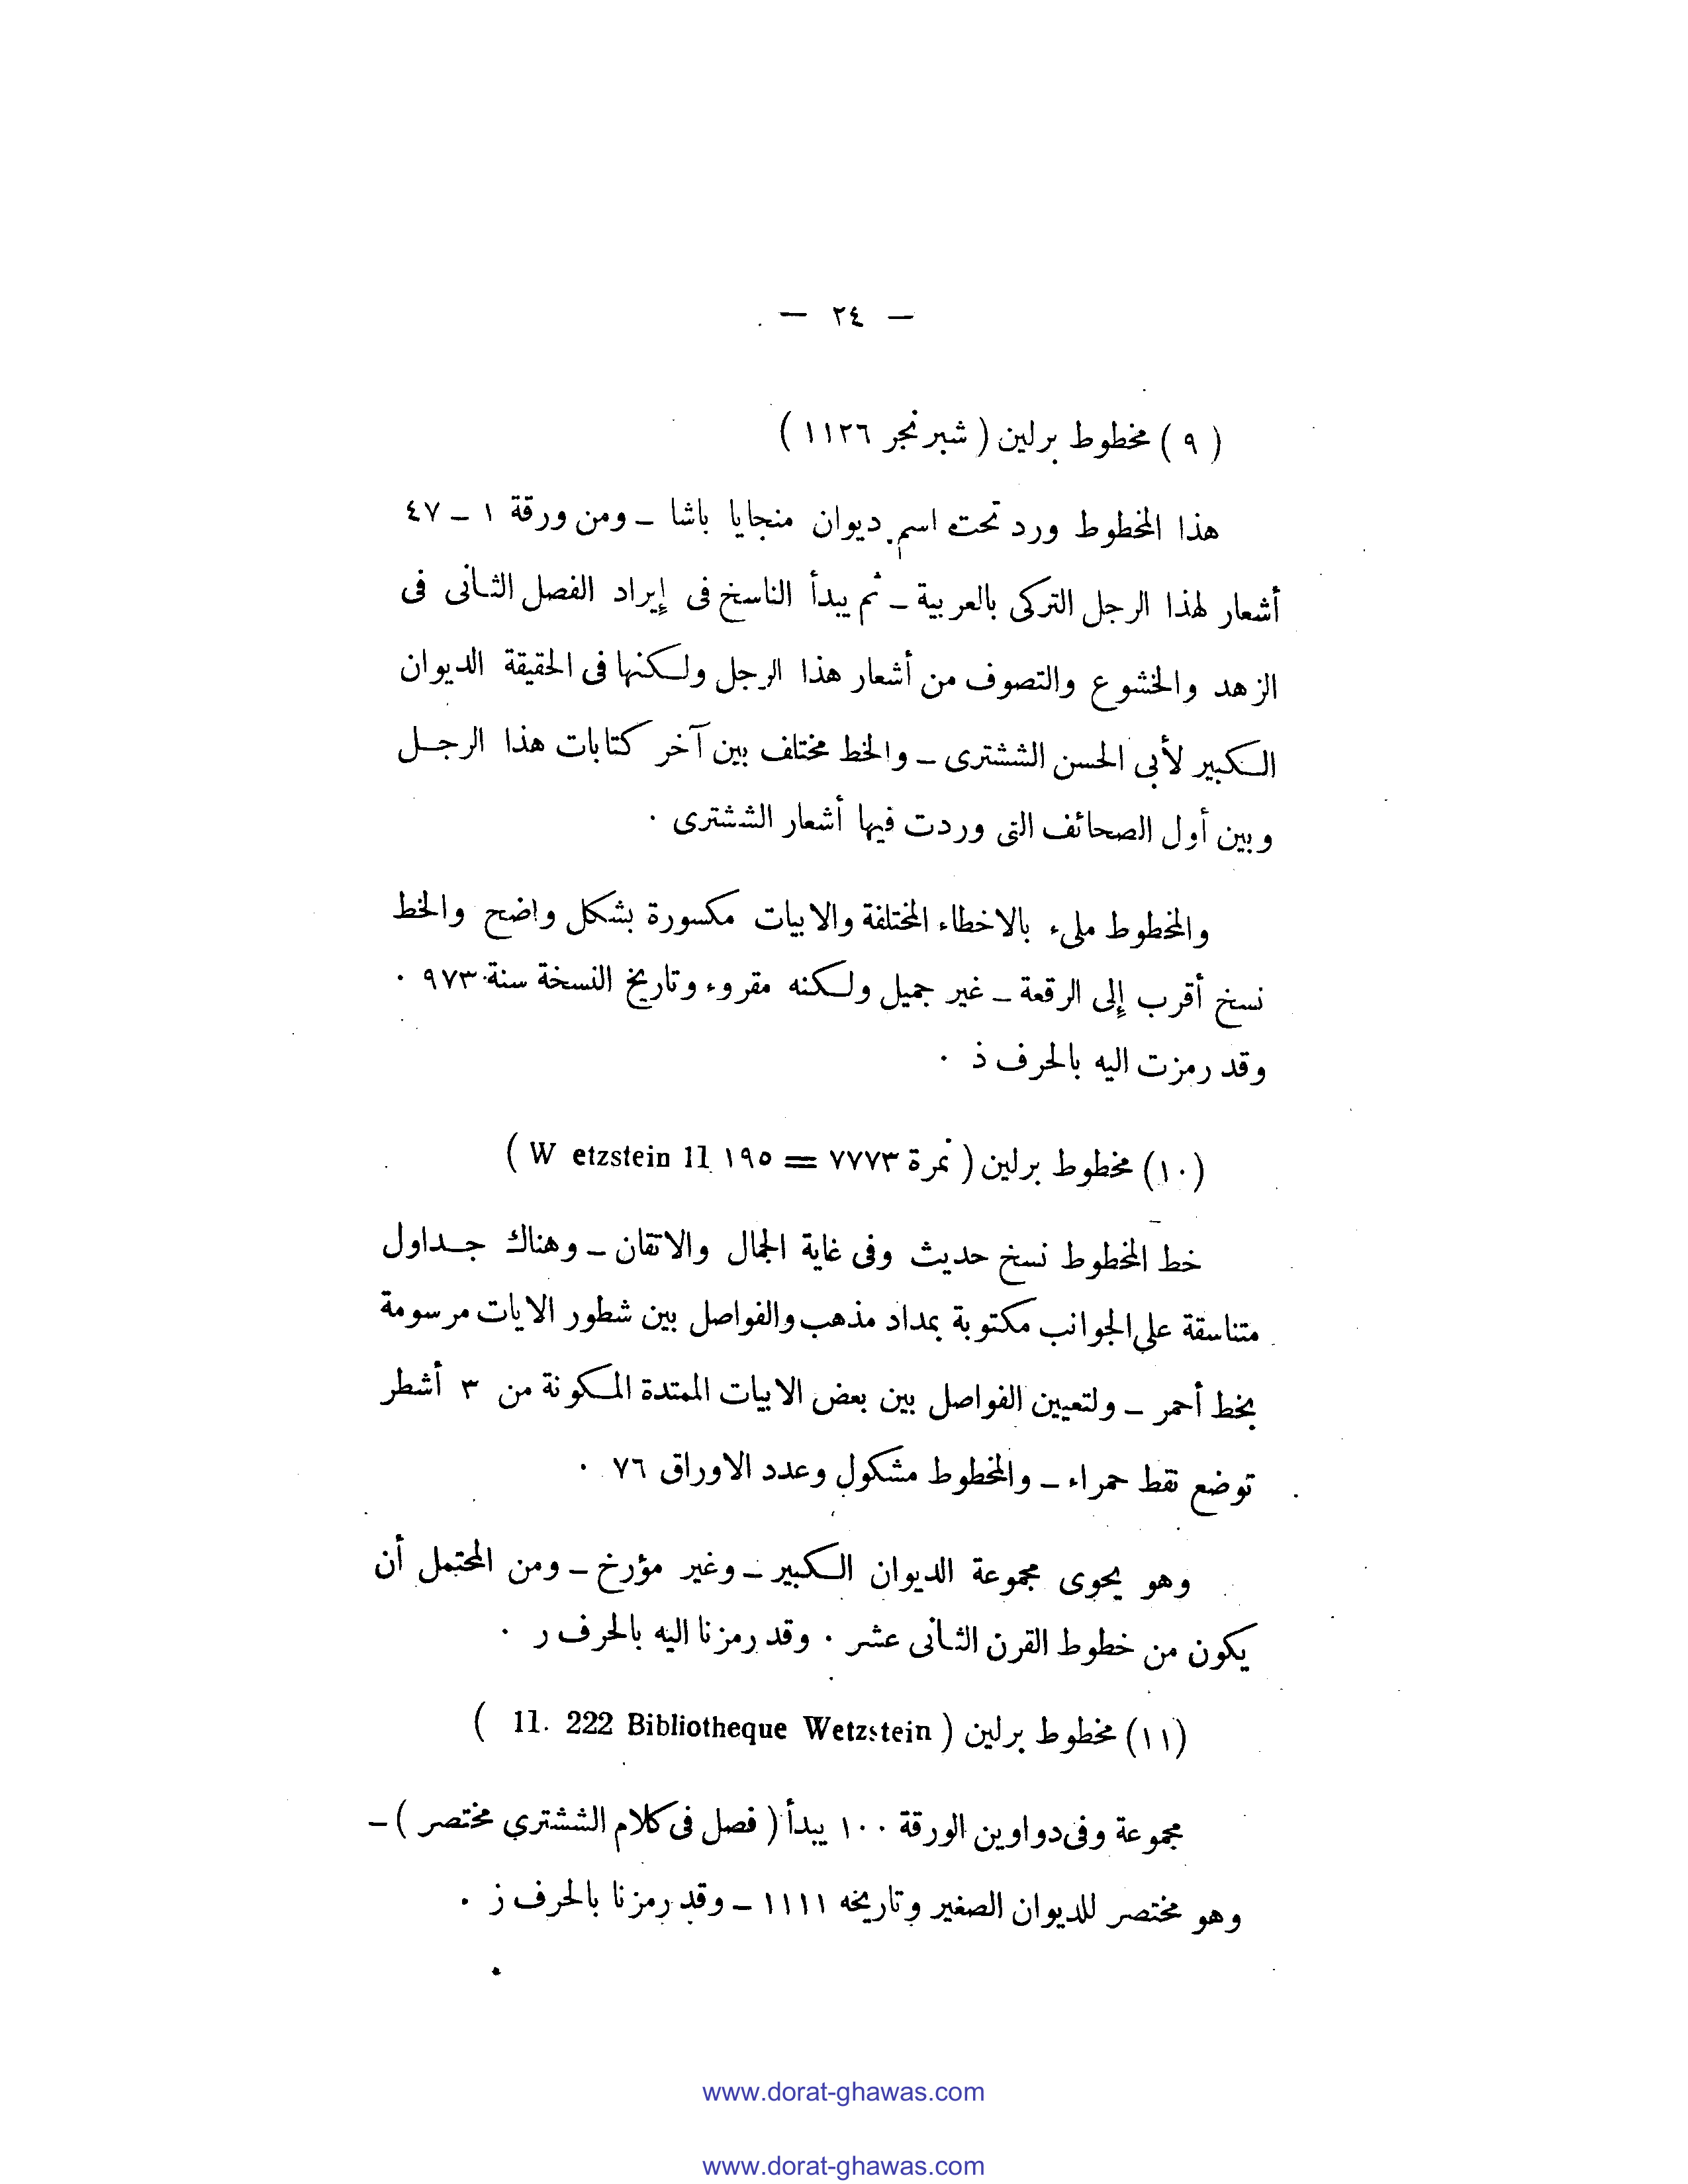 — ٢٤ —
( ٩ ) مخطوط برلين ( شبرنجر ١١٢٦ )
هذا المخطوط ورد تحت اسم ديوان منجايا باشا – ومن ورقة ١ – ٤٧
أشعار لهذا الرجل التركى بالعربية – ثم يبدأ الناسخ فى إيراد الفصل الثانى فى
الزهد والخشوع والتصوف من أشعار هذا الرجل ولكنها فى الحقيقة الديوان
الكبير لأبى الحسن الششترى – والخط مختلف بين آخر كتابات هذا الرجل
وبين أول الصحائف التى وردت فيها أشعار الششترى .
والمخطوط ملىء بالاخطاء المختلفة والابيات مكسورة بشكل واضح والخط
نسخ أقرب إلى الرقعة – غير جميل ولكنه مقروء وتاريخ النسخة سنة ٩٧٣ .
وقد رمزت اليه بالحرف ذ .
(١٠) مخطوط برلين ( نمرة ٧٧٧٣ = ١٩٥ W etzstein 11 )
خط المخطوط نسخ حديث وفى غاية الجمال والاتقان – وهناك جداول
متناسقة على الجوانب مكتوبة بمداد مذهب والفواصل بين شطور الايات مرسومة
بخط أحمر – ولتعيين الفواصل بين بعض الابيات الممتدة المكونة من ٣ أشطر
توضع نقط حمراء – والمخطوط مشكول وعدد الاوراق ٧٦ .
وهو يحوى مجموعة الديوان الكبير – وغير مؤرخ – ومن المحتمل أن
يكون من خطوط القرن الثانى عشر . وقد رمزنا اليه بالحرف ر .
(١١) مخطوط برلين ( 11. 222 Bibliotheque Wetzstein )
مجموعة وفى دواوين الورقة ١٠٠ يبدأ ( فصل فى كلام الششترى مختصر ) –
وهو مختصر للديوان الصغير وتاريخه ١١١١ – وقد رمزنا بالحرف ز .
www.dorat-ghawas.com
www.dorat-ghawas.com